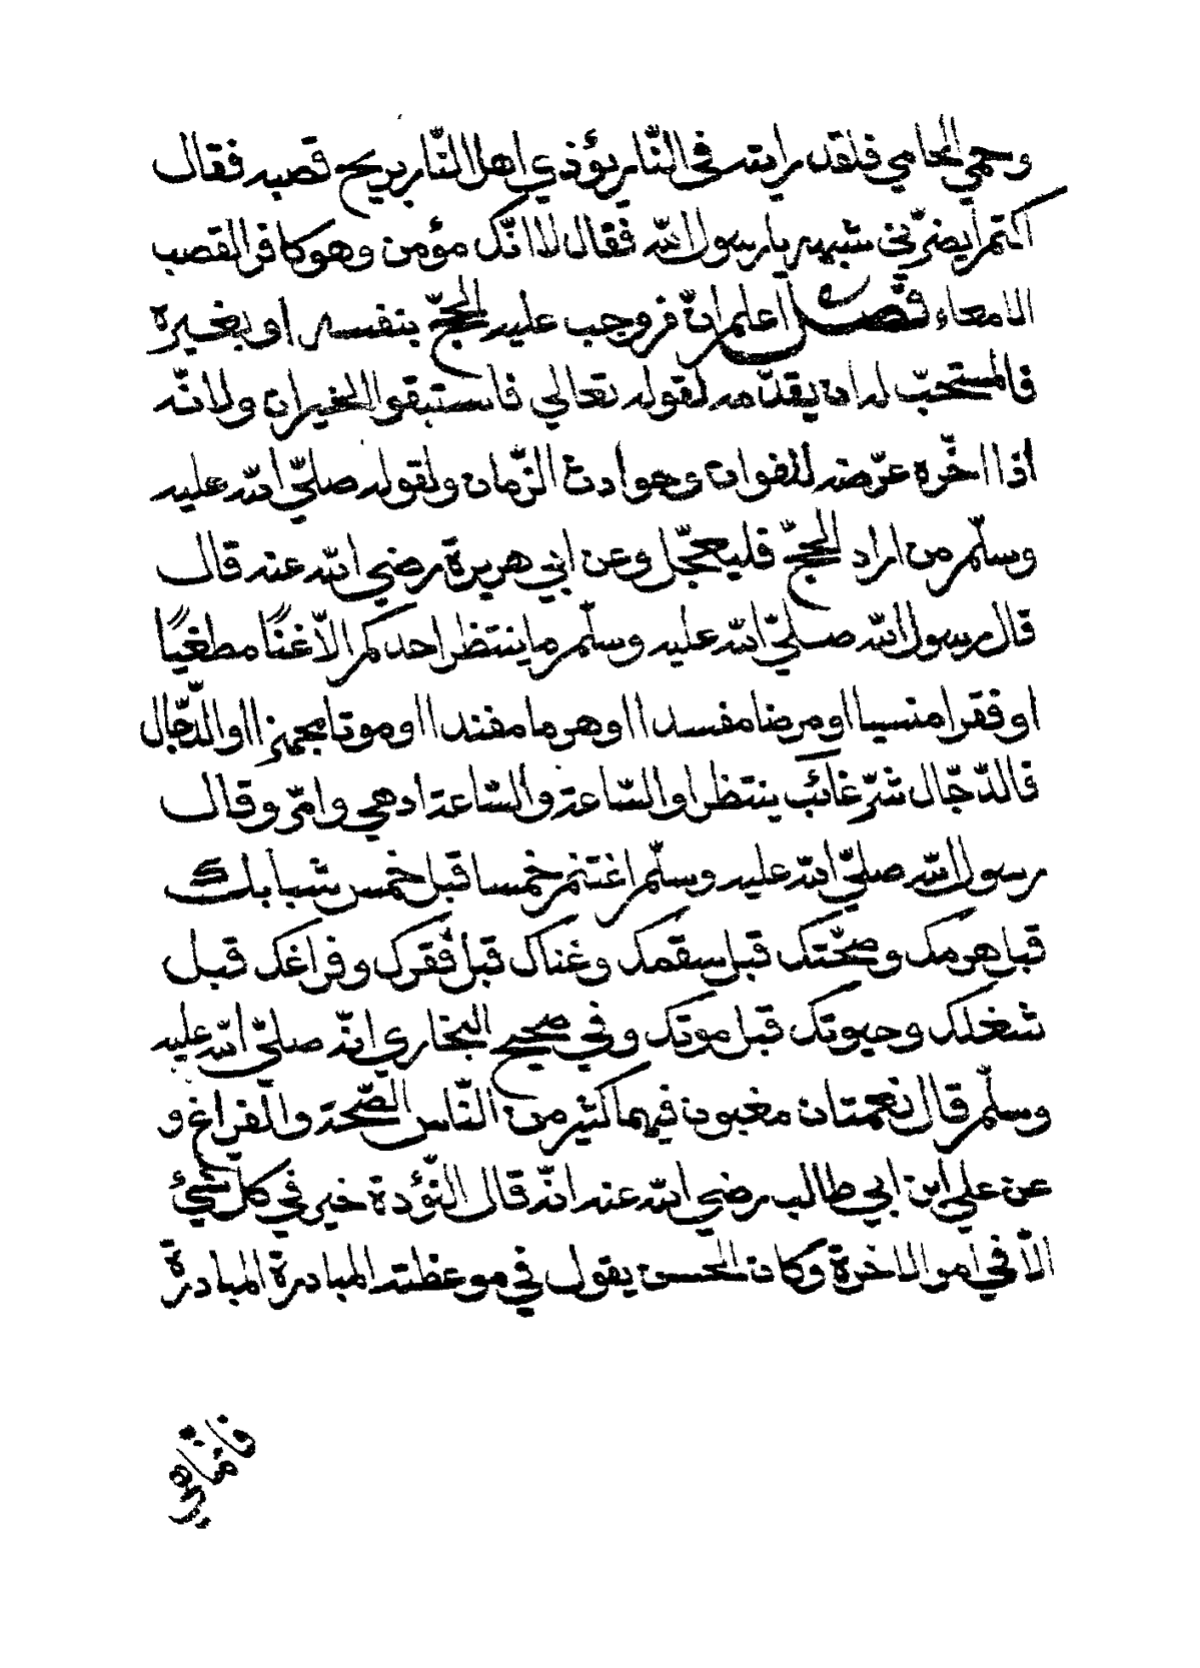 وحمي الحامي فلقد رايته في النّار يؤذي اهل النّار بريح قصبه فقال
اكتم ايضرّني شبهه يا رسول الله فقال لا انّك مؤمن وهو كافر القصب
الامعاء فصل اعلم انّ من وجب عليه الحجّ بنفسه او بغيره
فالمستحبّ له ان يقدّمه لقوله تعالي فاستبقوا الخيرات ولانّه
اذا اخّره عرّضه للفوات وحوادث الزّمان ولقوله صليّ الله عليه
وسلّم من اراد الحجّ فليعجّل وعن ابي هريرة رضي الله عنه قال
قال رسول الله صليّ الله عليه وسلّم ما ينتظر احدكم الاّ غنًا مطغيًا
او فقرا منسيا او مرضا مفسدا او هرما مفندا او موتا مجهزا او الدّجّال
فالدّجّال شرّ غائب ينتظر او السّاعة والسّاعة ادهي وامرّ وقال
رسول الله صليّ الله عليه وسلّم اغتنم خمسا قبل خمس شبابك
قبل هرمك وصحّتك قبل سقمك وغناك قبل فقرك وفراغك قبل
شغلك وحيوتك قبل موتك وفي صحيح البخاري انّه صليّ الله عليه
وسلّم قال نعمتان مغبون فيهما كثير من النّاس الصّحة والفراغ و
عن علي ابن ابي طالب رضي الله عنه انّه قال التّؤدة خير في كل شيئ
الاّ في امر الاخرة وكان الحسن يقول في موعظته المبادرة المبادرة